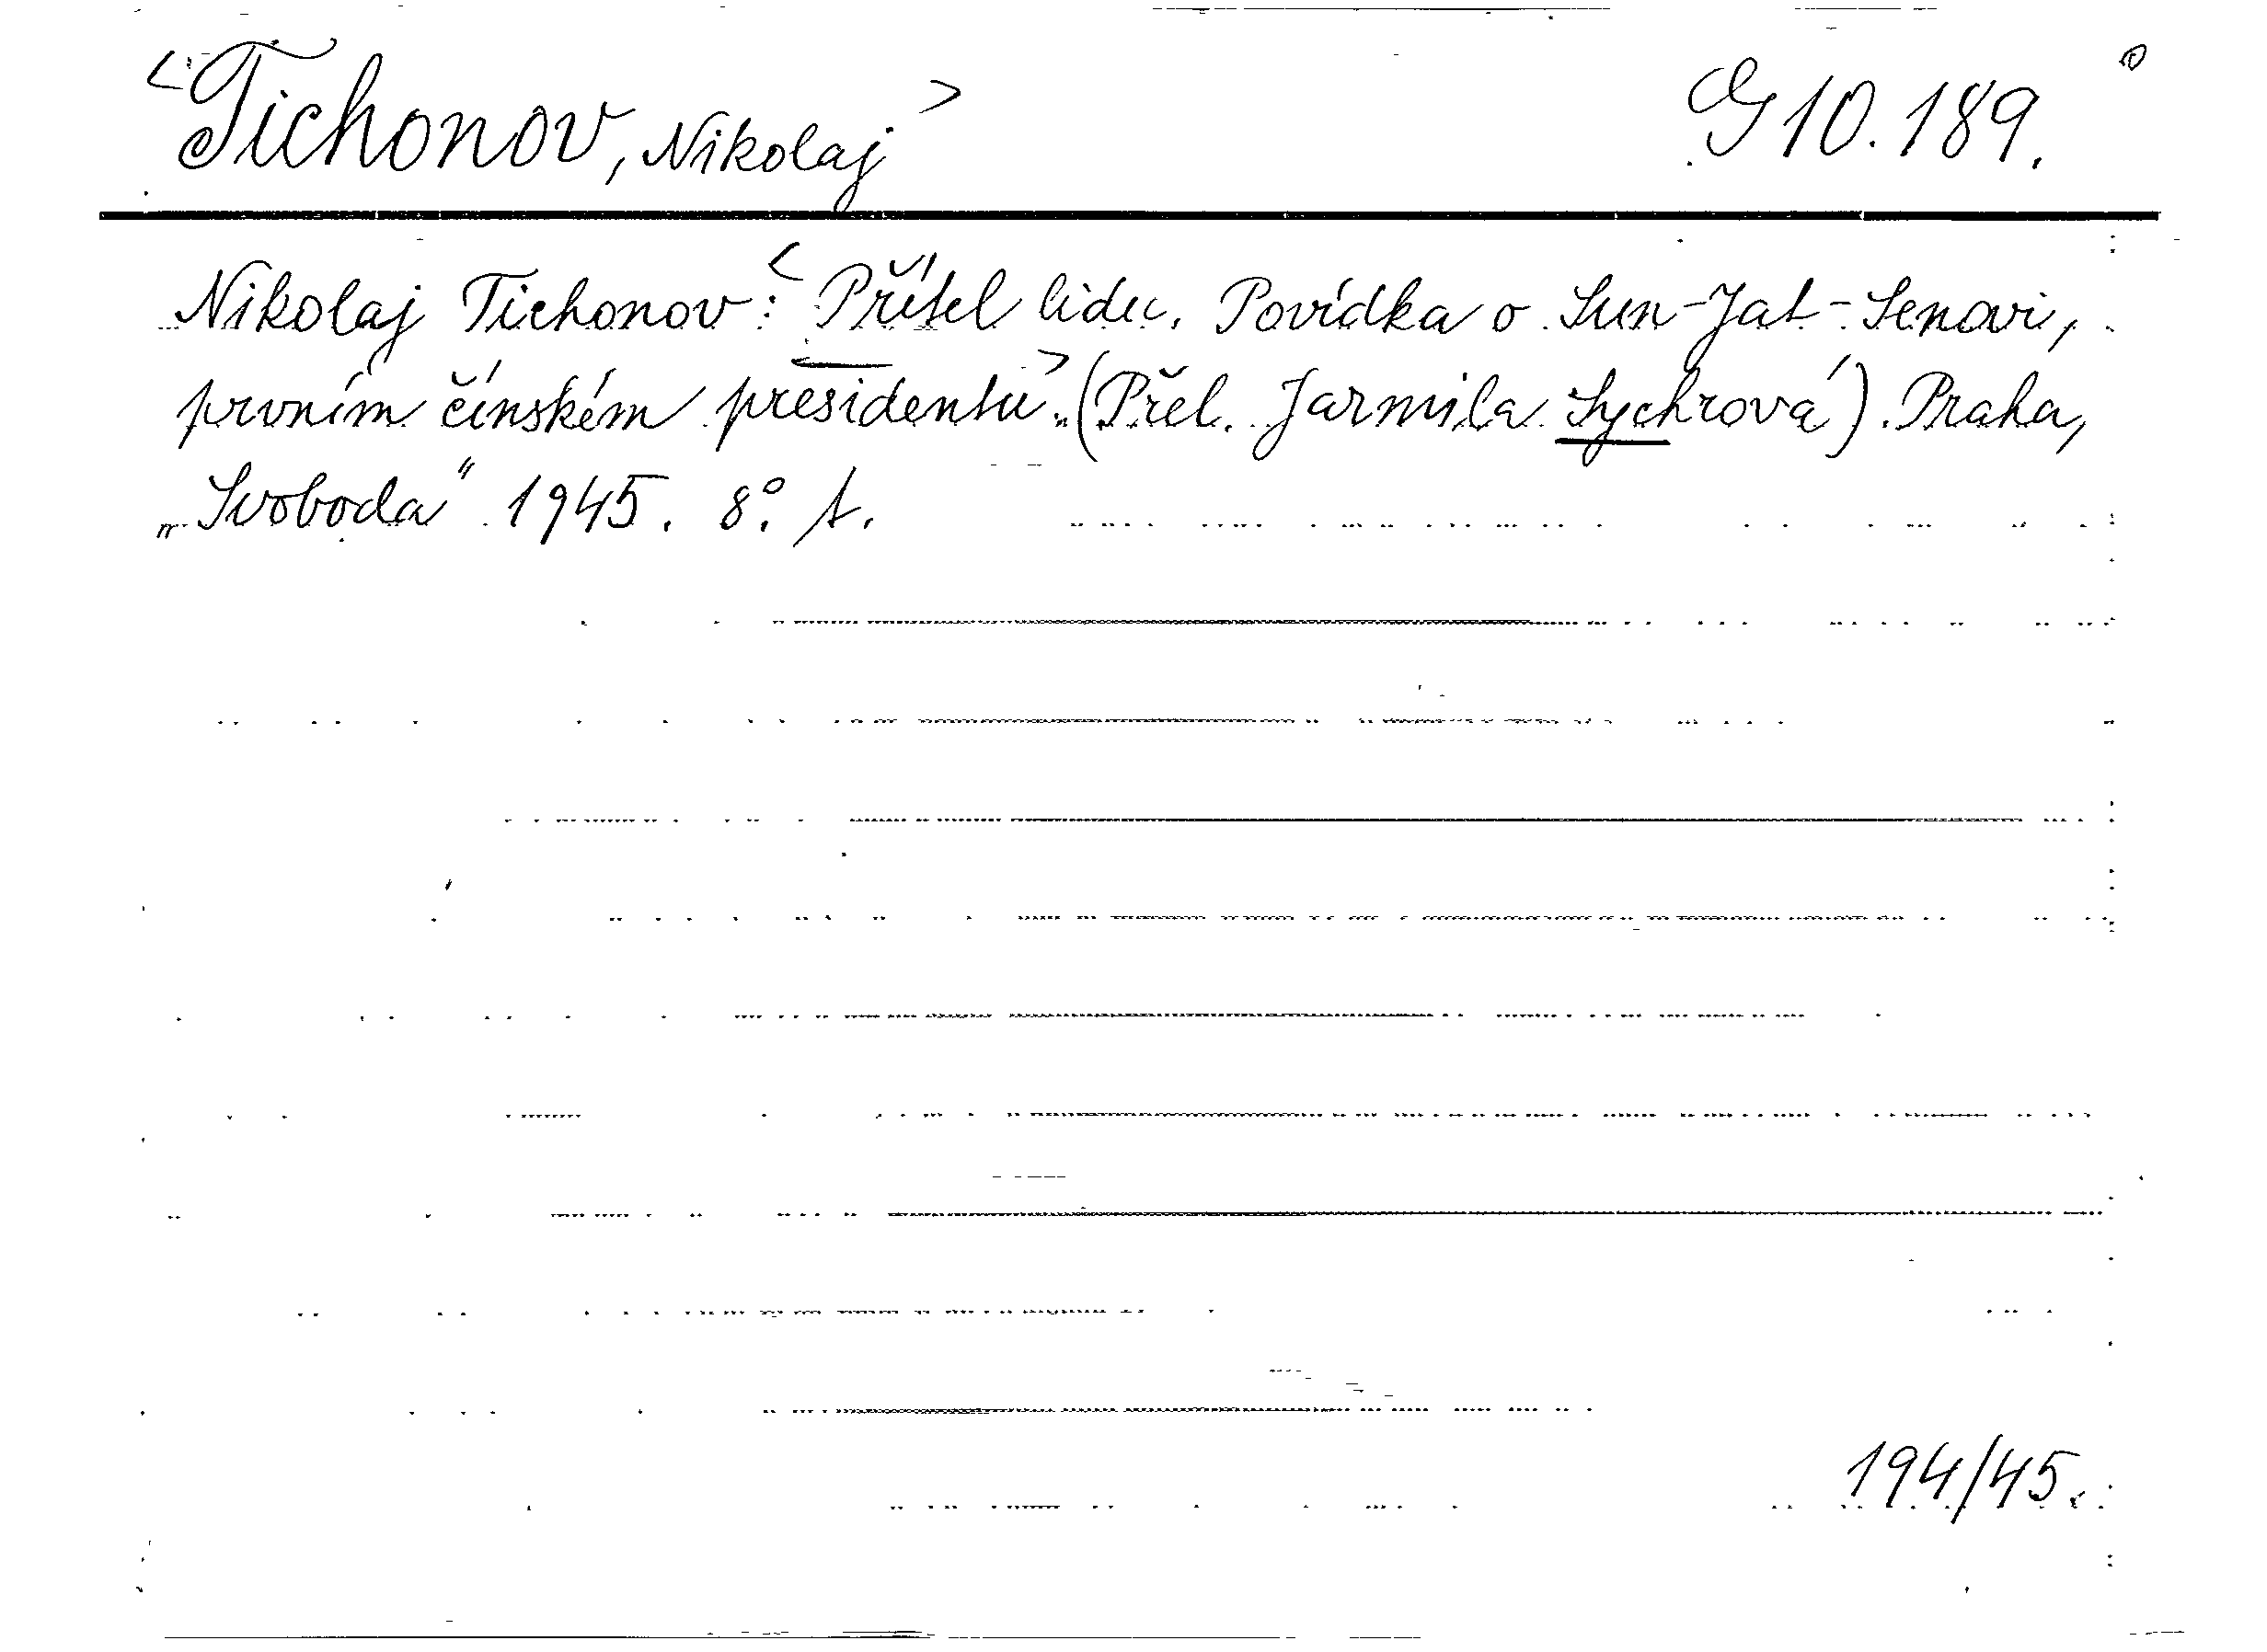 <Tichonov, Nikolaj> G 10.189.
Nikolaj Tichonov: <Přítel lidu. Povídka o Sun-Jat-Senovi,
prvním čínském presidentu>. (Přel. Jarmila Sychrová). Praha,
„Svoboda" 1945. 8°. A.
194/45.